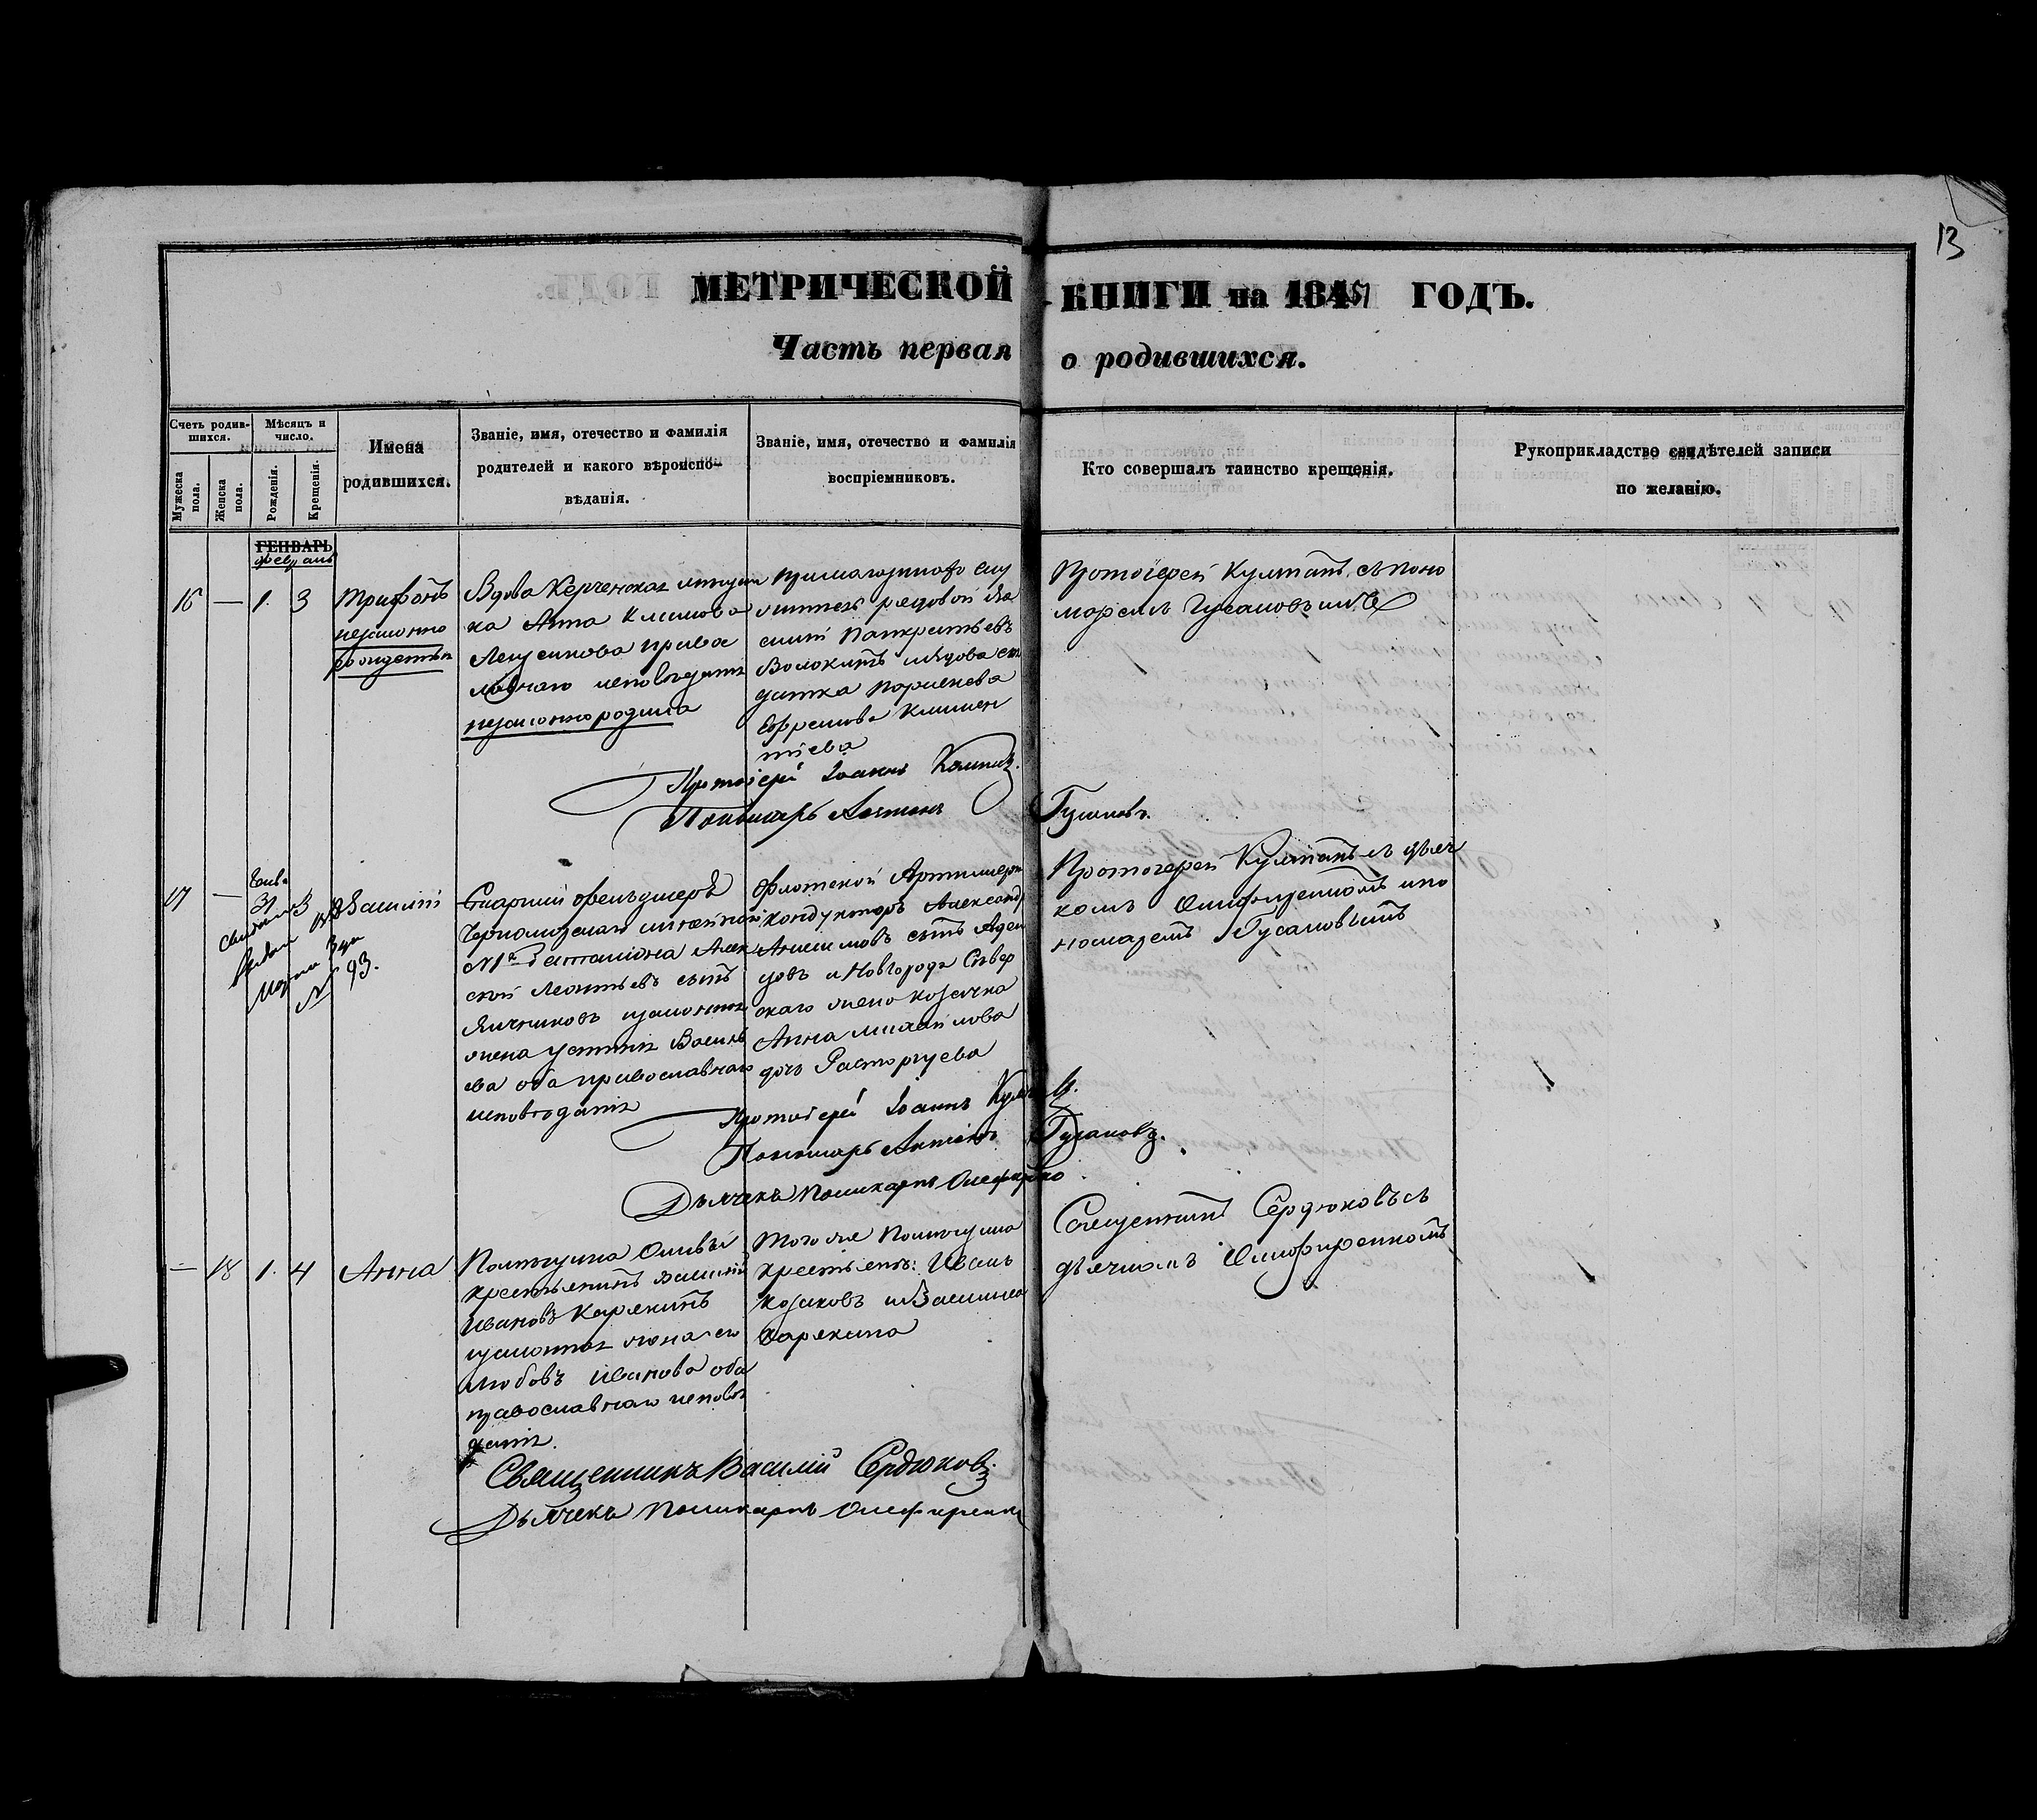 13
МЕТРИЧЕСКОЙ КНИГИ на 184 ГОДЪ.
Часть первая о родившихся.
Счетъ родившихся.
Мужеска пола.
Женска пола.
Мѣсяцъ и число.
Рожденія.
Крещенія.
Имена родившихся.
Званіе, имя, отечество и фамилія
родителей и какого вѣроиспо-
вѣданія.
Званіе, имя, отечество и фамилія
воспріемниковъ.
Кто совершалъ таинство крещенія.
Рукоприкладство свидѣтелей записи
по желанію.
ГЕНВАРЬ
февраль
— 1. 3
Трифонъ
незаконно
рожденъ
Вдова Керченская
ка Анна Климова
права
славнаго исповѣданія
незаконно родила
рядовой Ва
силій Панкратьевъ
Волокитъ и вдова сол
датка
Ефремова Климен
тіева
Протоіерей съ поно
маремъ Гусаковымъ
Протоіерей Іоаннъ
Пономарь Антонъ Гусаковъ.
— Генв. 31 3
Василій
Марта
№ 93.
Старшій фельдшеръ
Черноморскаго линейнаго
баталіона Алек
сѣй Леонтьевъ сынъ
Яичниковъ законная
жена Устинія Василь
ева оба православнаго
исповѣданія
Флотской Артиллеріи
кондукторъ Александръ
Анисимовъ сынъ
и Новгорода Сѣвер
скаго жена козачка
Анна Михайлова
дочь Расторгуева
Протоіерей съ дьяч
комъ Олифиренкомъ и по
номаремъ Гусаковымъ
Протоіерей Іоаннъ
Пономарь Антонъ Гусаковъ.
Дьячекъ Поликарпъ Олефиренко
— 18 1. 4
Анна
крестьянинъ Василій
Ивановъ Карякинъ
законная жена его
Любовь Иванова оба
православнаго исповѣ
данія.
Того же
крестьянъ: Иванъ
Козаковъ и Василиса
Карякина
Священникъ Сердюковъ съ
дьячкомъ Олифиренкомъ
Священникъ Василій Сердюковъ.
Дьячекъ Поликарпъ Олефиренко